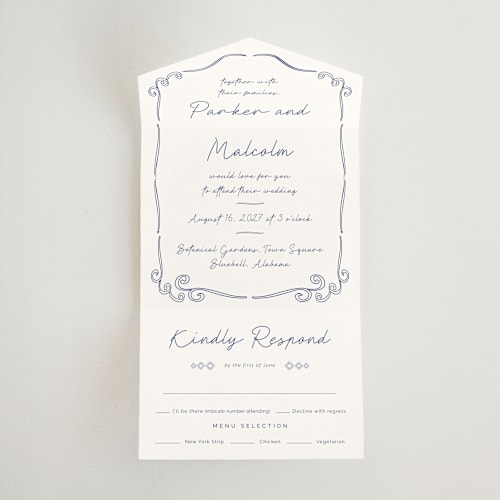 together with
their families,
Parker and
Malcolm
would love for you
to attend their wedding
August 16, 2027 at 3 o'clock
Botanical Gardens, Town Square
Bluebell, Alabama
Kindly Respond
by the first of June
I'll be there (indicate number attending) Decline with regrets
MENU SELECTION
New York Strip Chicken Vegetarian